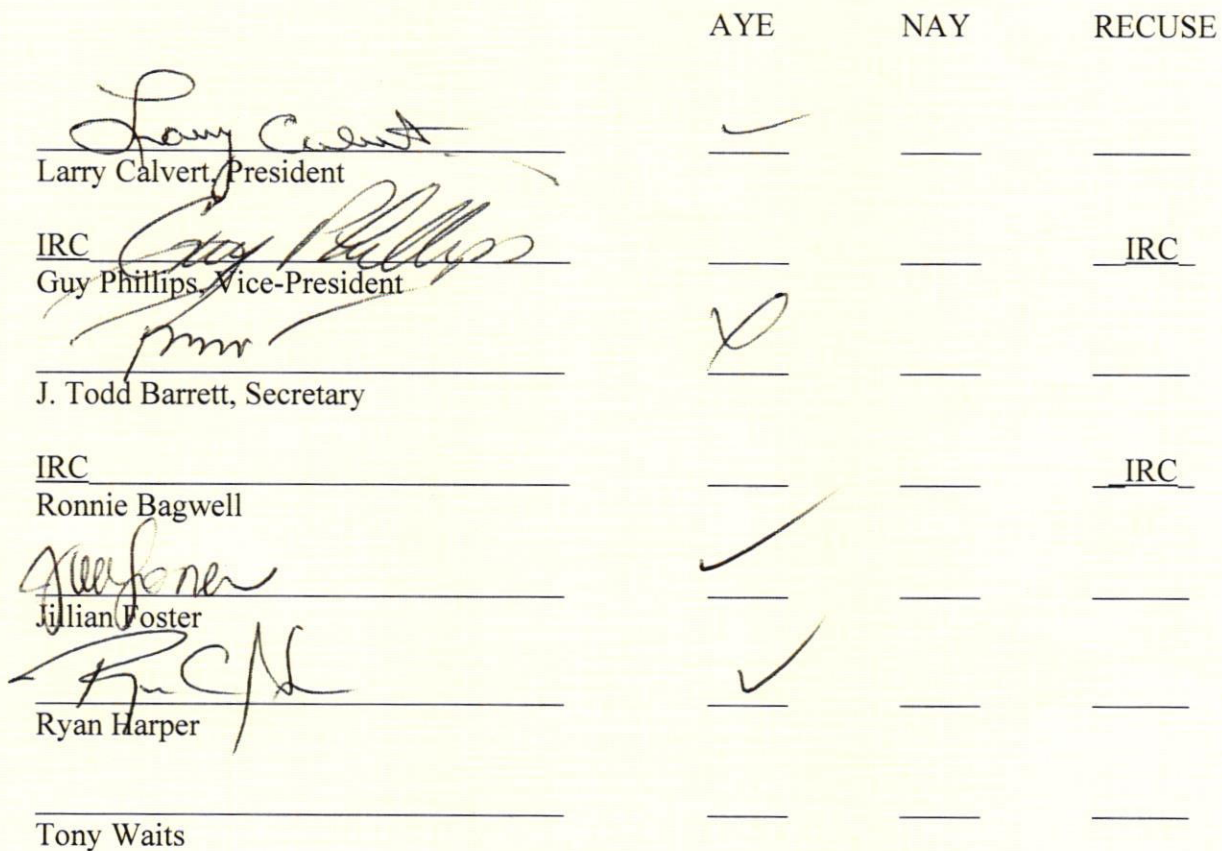 AYE NAY RECUSE
Larry Calvert ✓
Larry Calvert, President
IRC Guy Phillips IRC
Guy Phillips, Vice-President
J. Todd Barrett, Secretary
IRC IRC
Ronnie Bagwell
✓
Jillian Foster
✓
Ryan Harper
Tony Waits